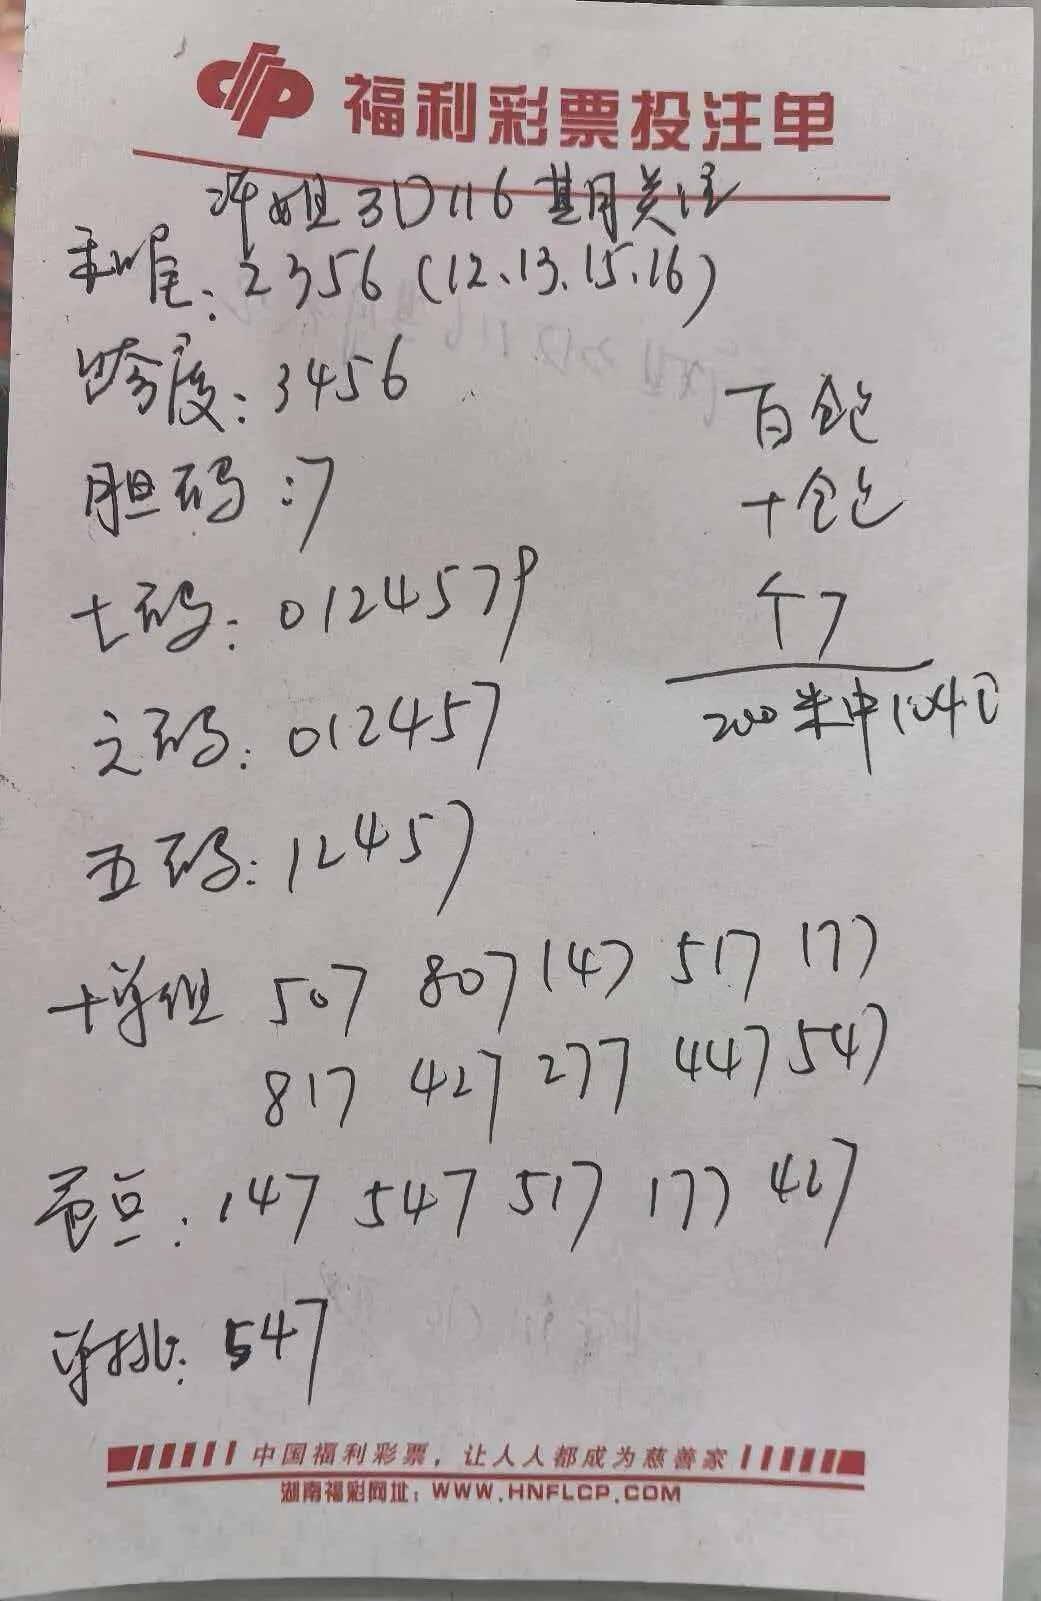 福利彩票投注单
姐3D116期关注
和尾：2356（12、13.15.16）
跨度：3456
胆码：7
七码：0124579
六码：012457
五码：12457
十单组 507 807 147 517 177
817 427 277 447 547
毛豆：147 547 517 177 427
单挑：547
百全包
十全包
个7
200米中1040
中国福利彩票，让人人都成为慈善家
湖南福彩网址：WWW.HNFLCP.COM